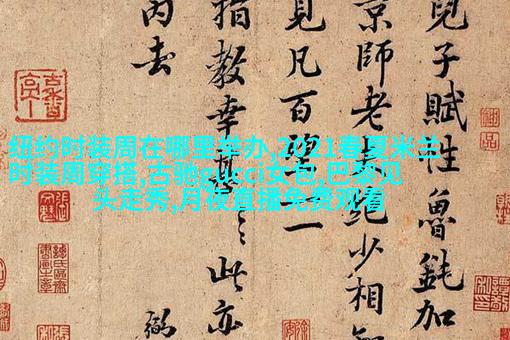 兒子賦性魯鈍加
京師老絕少相
見凡百望一
指教幸此亦
去
纽约时装周在哪里举办,2021春夏米兰
时装周穿搭,古驰gucci女包,巴
头走秀,月夜直播免费观看